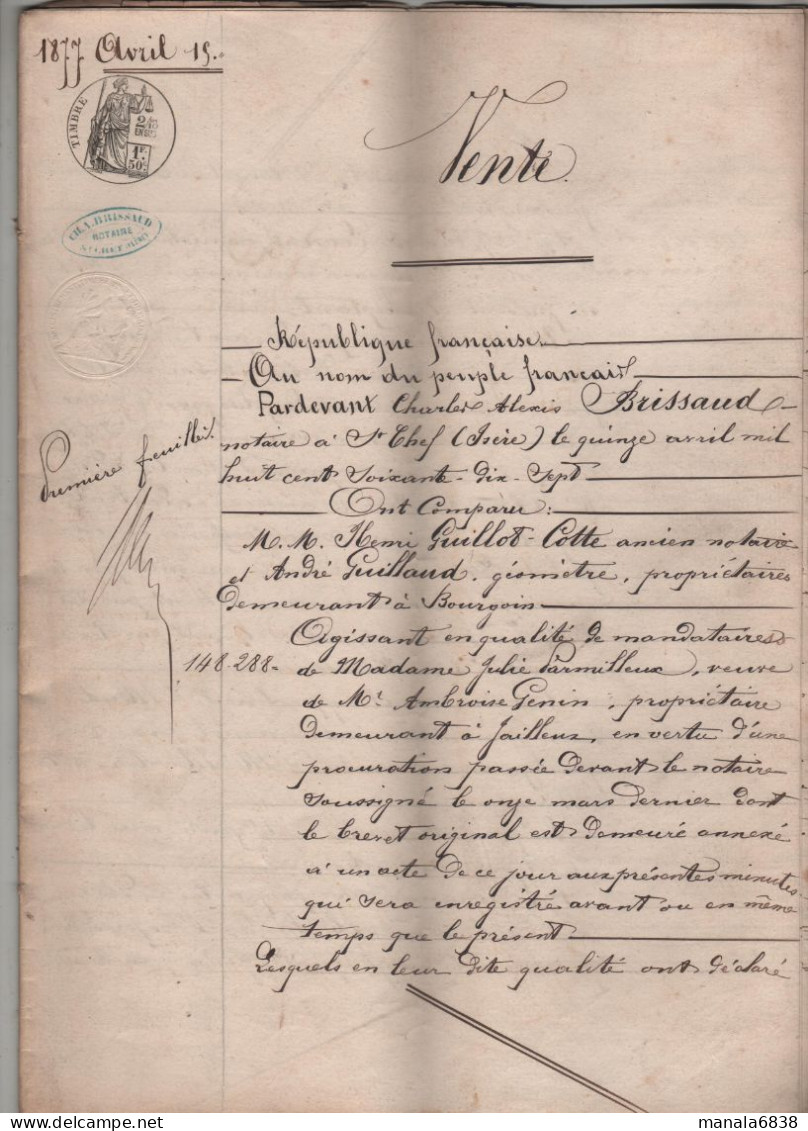 1877 Avril 15.
TIMBRE
2/10
EN SUS
1F.
50C.
CH. A. BRISSAUD
NOTAIRE
Vente.
République française
Au nom du peuple français
Pardevant Charles Alexis Brissaud
notaire à St Chef (Isère) le quinze avril mil
huit cent Soixante-dix-Sept
Ont Comparu :
Première feuillet.
M.M. Henri Guillot-Cotte ancien notaire
et André Guillaud, géomètre, propriétaires
demeurant à Bourgoin
Agissant en qualité de mandataires
148.288 =
de Madame Julie Parmilleux, veuve
de Mr Ambroise Genin, propriétaire
demeurant à Jailleux, en vertu d'une
procuration passée devant le notaire
soussigné le onze mars dernier dont
le brevet original est demeuré annexé
à un acte de ce jour aux présentes minutes
qui sera enregistré avant ou en même
temps que le présent
Lesquels en leur dite qualité ont déclaré
manala6838